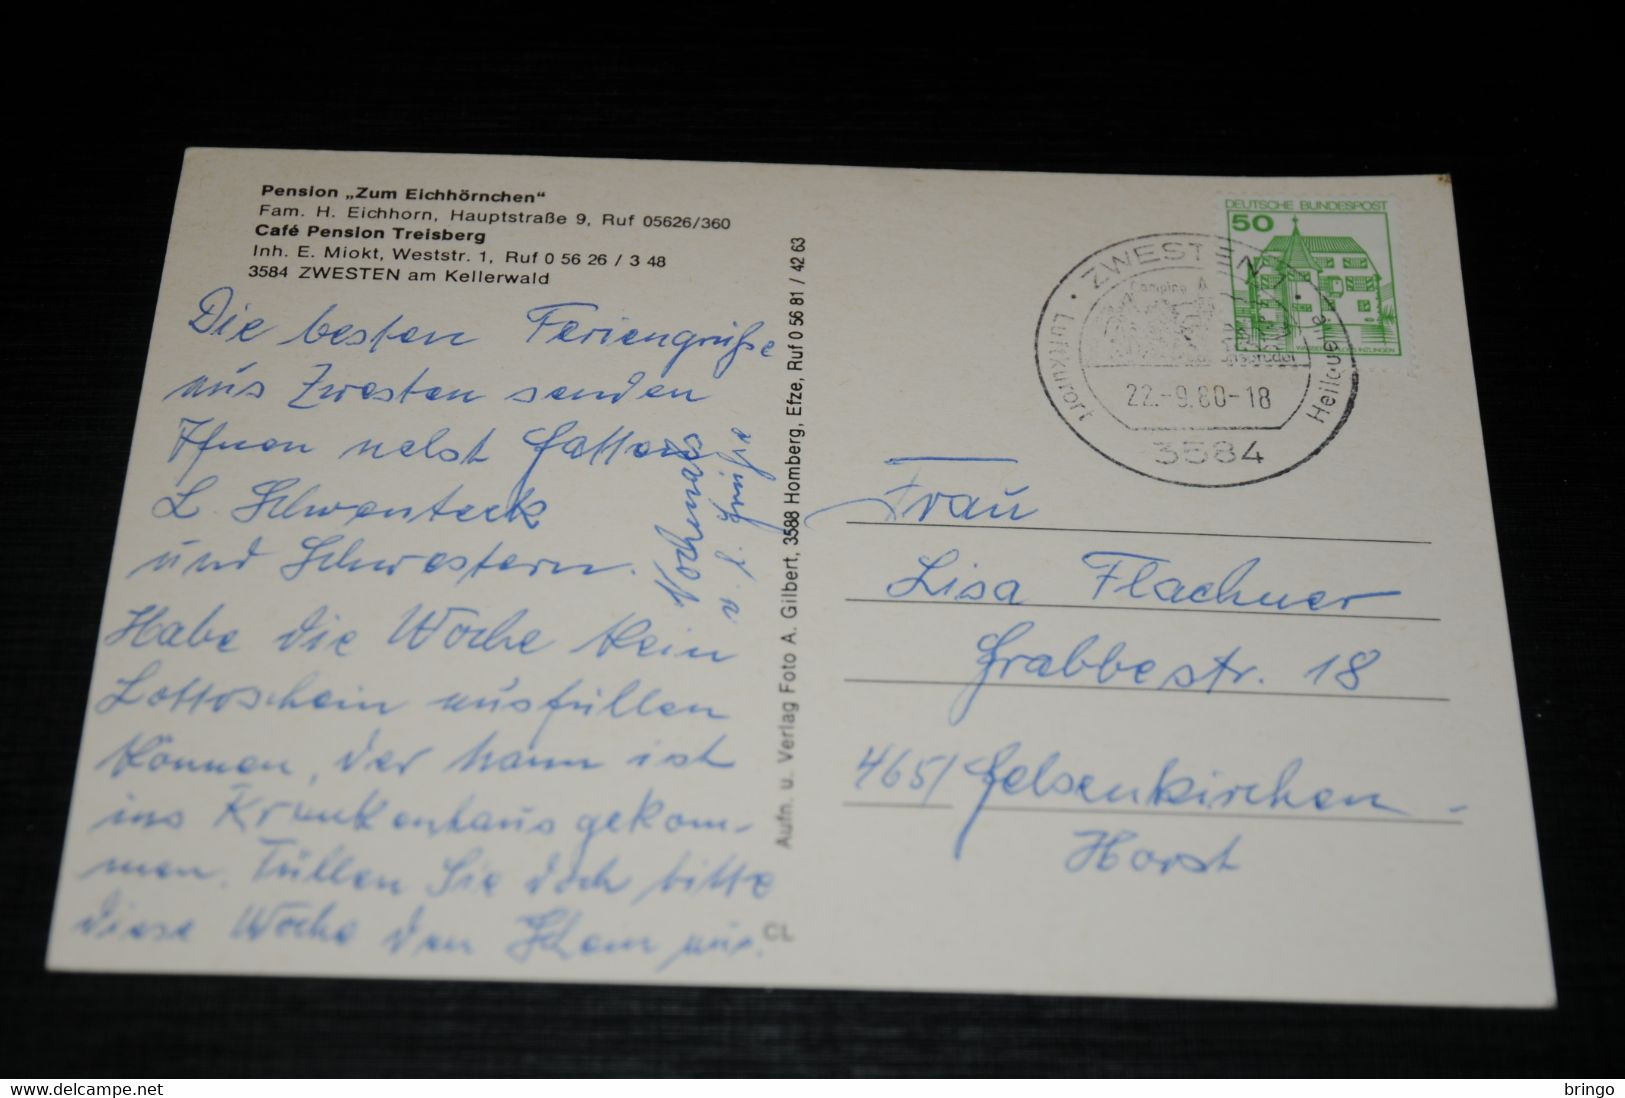 Pension „Zum Eichhörnchen"
Fam. H. Eichhorn, Hauptstraße 9, Ruf 05626/360
Café Pension Treisberg
Inh. E. Miokt, Weststr. 1, Ruf 0 56 26 / 3 48
3584 ZWESTEN am Kellerwald
Die besten Feriengrüße
aus Zwesten senden
Ihnen nebst Gatten
L. Schwenteck
und Schwestern.
Habe die Woche kein
Lottoschein ausfüllen
können, der Mann ist
ins Krankenhaus gekom-
men. Füllen Sie doch bitte
diese Woche den Schein aus.
Nochmals
v. l. Grüße
Aufn. u. Verlag Foto A. Gilbert, 3588 Homberg, Efze, Ruf 0 56 81 / 42 63
CL
DEUTSCHE BUNDESPOST
50
ZWESTEN
Camping
Luftkurort
22.-9.80-18
3584
Frau
Lisa Flachner
Grabbestr. 18
4651 Gelsenkirchen-
Horst
delcampe.net
bringo